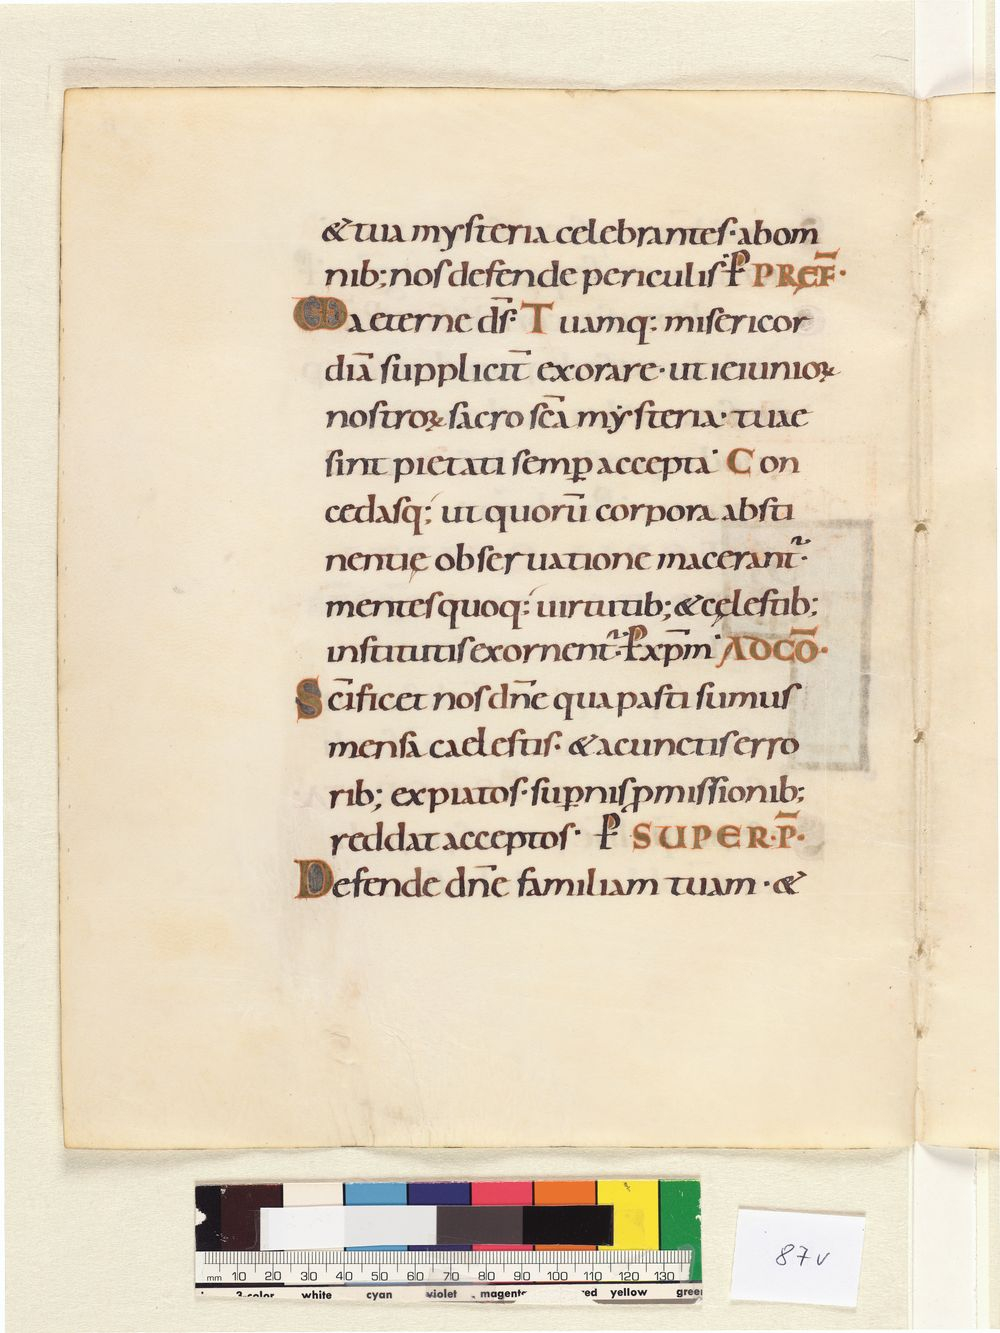 & tua mysteria celebrantes· ab om
nib; nos defende periculis· ꝑ PREF̄·
VD aeterne d̄s· Tuamq: misericor
diā suppliciт̄ exorare· ut ieiunioꝝ
nostroꝝ sacro sc̄a mẏsteria· tuae
sint pietati semꝑ accepta· Con
cedasq; ut quorū corpora absti
nentię obseruatione macerant᷑·
mentes quoq; uirtutib; & cęlestib;
institutis exornent᷑· P xp̄m· AD CŌ·
Sc̄ificet nos dn̄e qua pasti sumus
mensa caelestis· & a cunctis erro
rib; expiatos· suꝑnis ꝓmissionib;
reddat acceptos· P SUPER·P̄·
Defende dn̄e familiam tuam· &
mm 10 20 30 40 50 60 70 80 90 100 110 120 130
3-color white cyan violet magenta red yellow green
87v